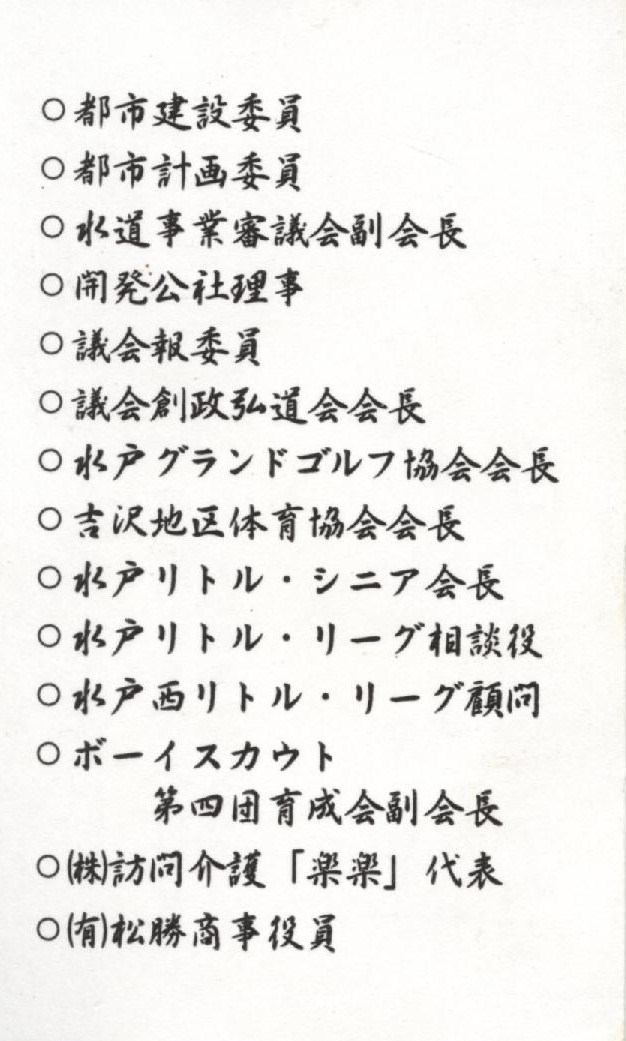 ○都市建設委員
○都市計画委員
○水道事業審議会副会長
○開発公社理事
○議会報委員
○議会創政弘道会会長
○水戸グランドゴルフ協会会長
○吉沢地区体育協会会長
○水戸リトル・シニア会長
○水戸リトル・リーグ相談役
○水戸西リトル・リーグ顧問
○ボーイスカウト
第四団育成会副会長
○㈱訪問介護「楽楽」代表
○㈲松勝商事役員